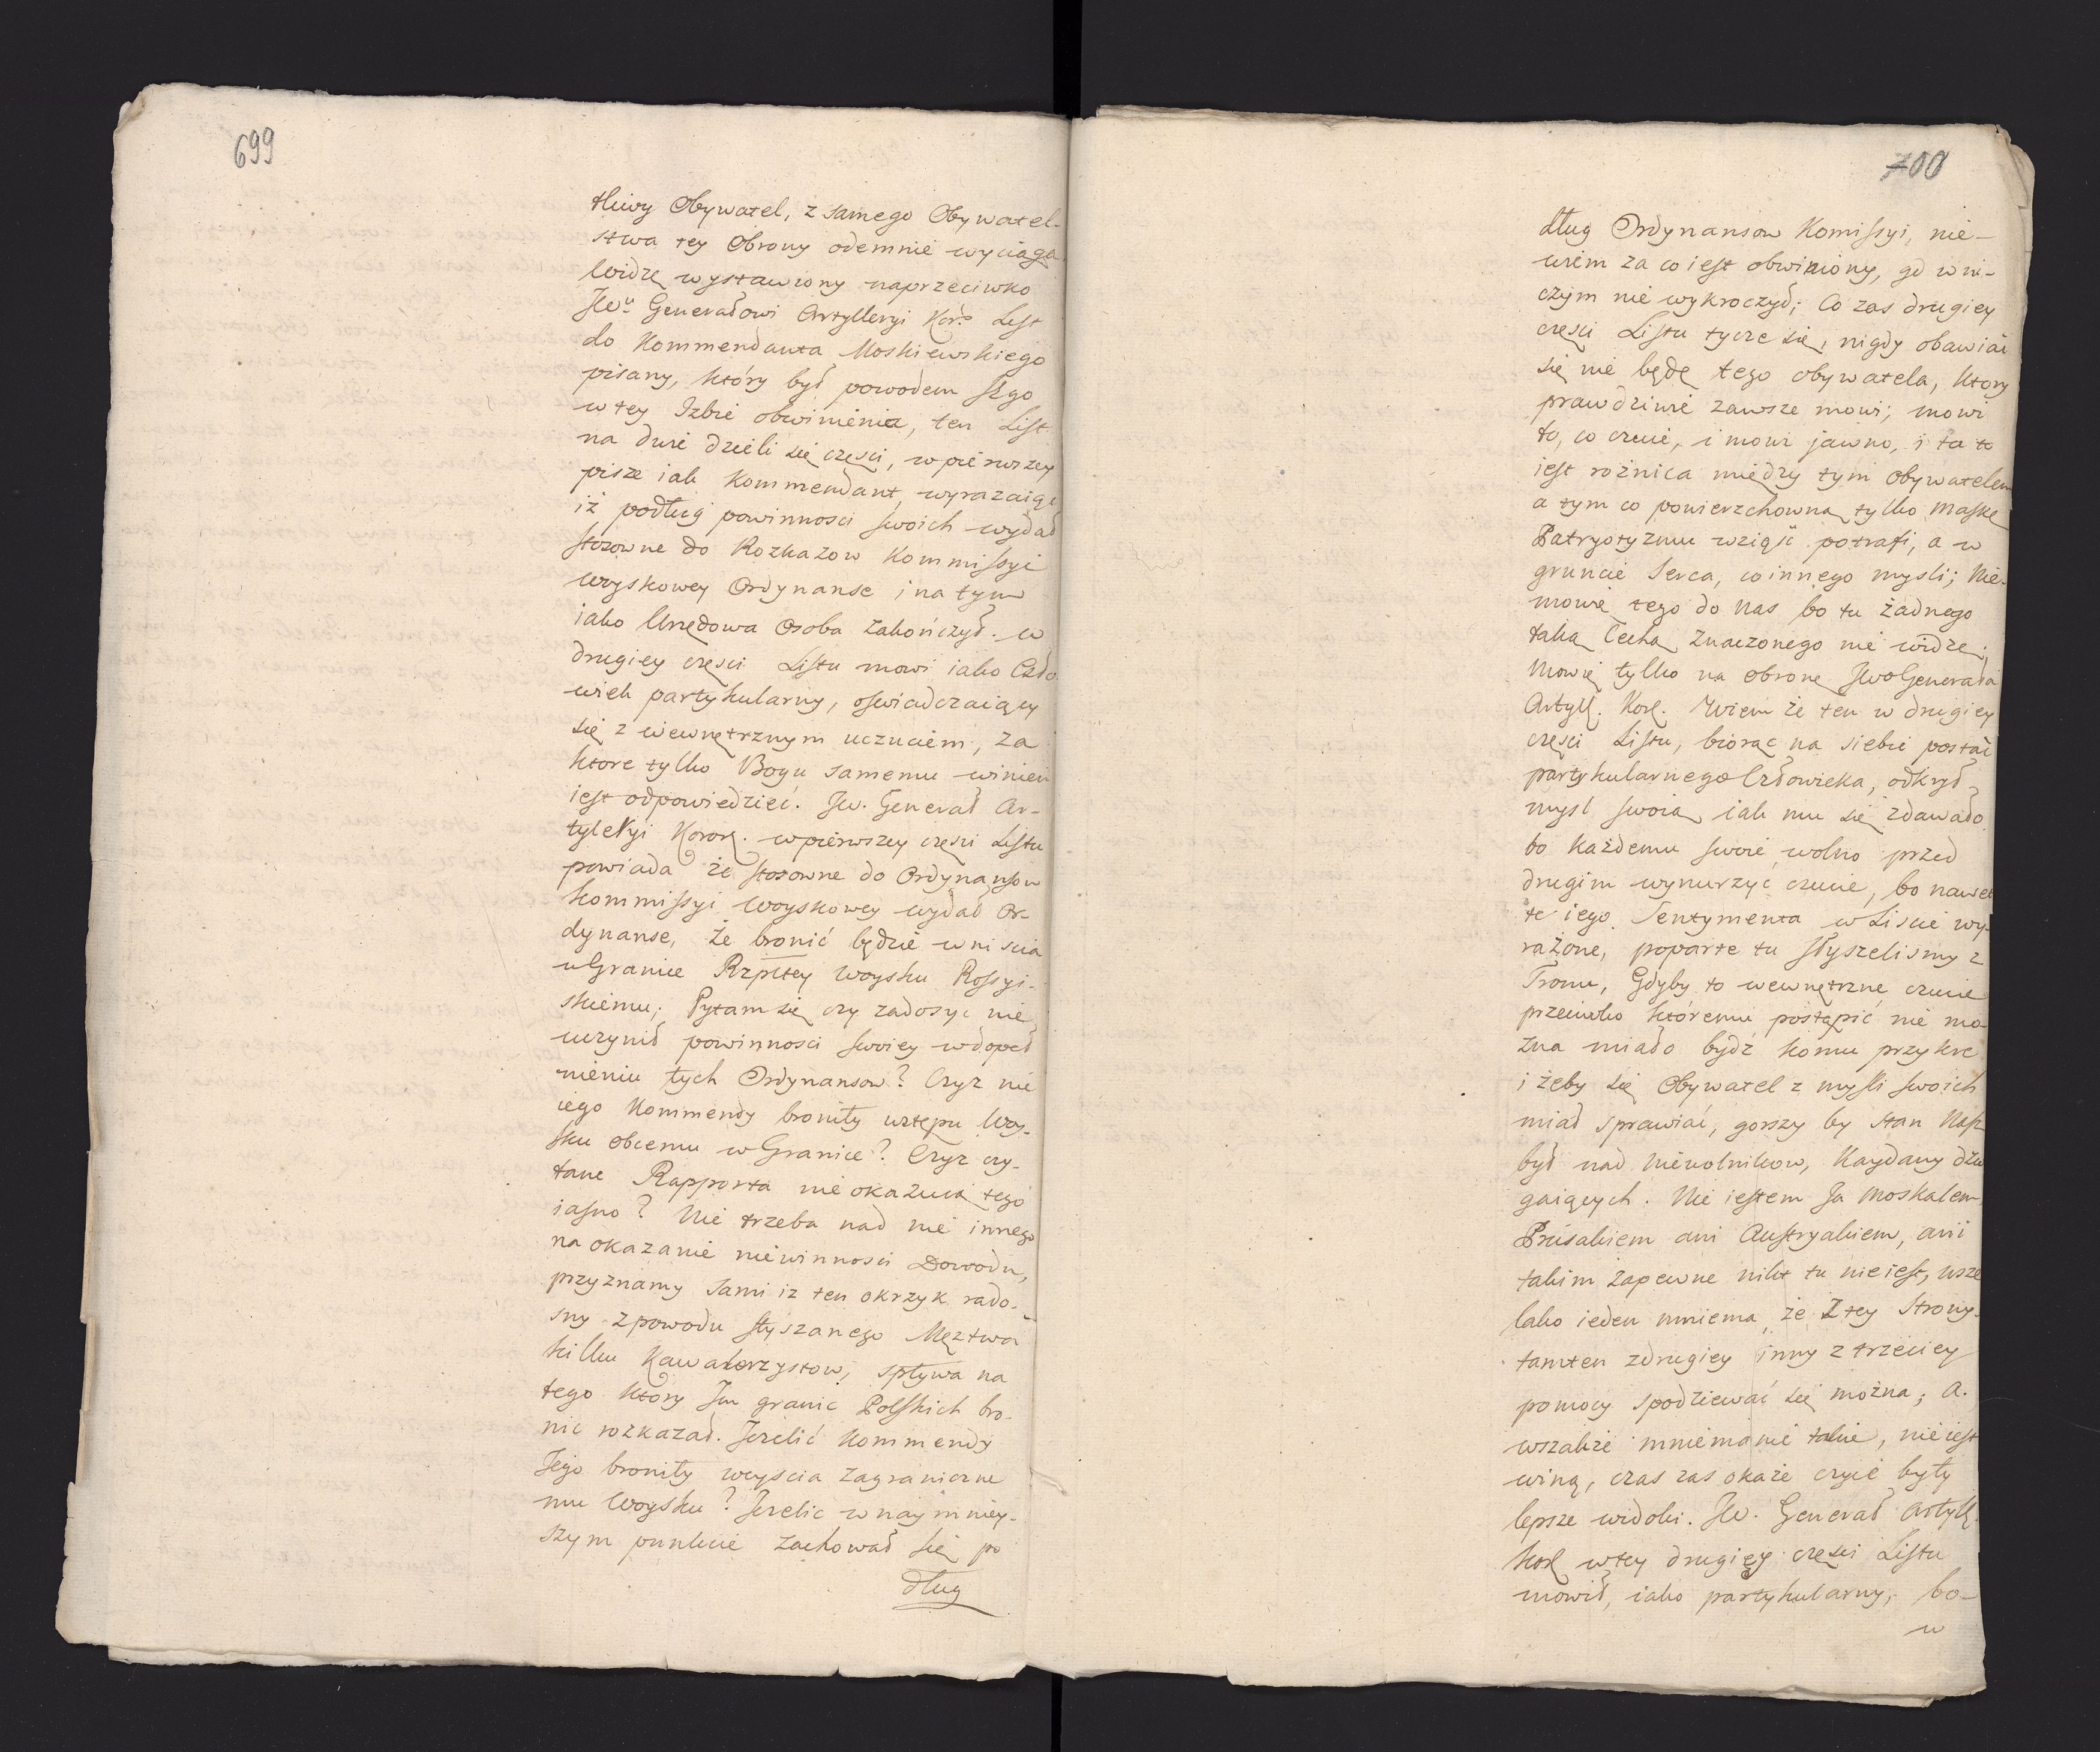 699
tliwy Obywatel, z samego Obywatel-
stwa tey Obrony odemnie wyciąga
widzę wystawiony naprzeciwko
JWu Generałowi Artylleryi Kor: List
do Kommendanta Moskiewskiego
pisany, który był powodem Jego
w tey Izbie obwinienia, ten List
na dwie dzieli się częsci, w pierwszey
pisze iak Kommendant, wyrazaiąc
iż podług powinnosci swoich wydał
stosowne do Rozkazow Kommissyi
woyskowey Ordynanse i na tym
iako Urzędowa Osoba zakończył. w
drugiey częsci Listu mowi iako Czło
wiek partykularny, oswiadczaiący
się z wewnętrznym uczuciem, za
ktore tylko Bogu samemu winien
iest odpowiedzieć. JW. Generał Ar-
tyleryi Koron. w pierwszey częsci Listu
powiada że stosowne do Ordynansow
Kommissyi Woyskowey wydał Or-
dynanse, że bronić będzie wniscia
w Granice Rzpltey woysku Rossyi-
skiemu; Pytam się czy zadosyc nie
uczynił powinnosci swoiey w dopeł
nieniu tych Ordynansow? Czyz nie
iego Kommendy broniły wstępu Woy-
sku obcemu w Granice? Czyz czy-
tane Rapporta nie okazuią tego
iasno? Nie trzeba nad nie innego
na okazanie niewinnosci Dowodu,
przyznamy sami iz ten okrzyk rado-
sny z powodu słyszanego Męztwa
kilku Kawalerzystow, spływa na
tego który Im granic Polskich bro-
nic rozkazał. Jezelić Kommendy
Jego broniły weyscia zagraniczne
mu Woysku? Jezelic w naymniey-
szym punkcie zachował się po
dług
700
dług Ordynansow Komissyi, nie-
wiem za co iest obwiniony, gd w ni-
czym nie wykroczył; Co zas drugiey
częsci Listu tycze się, nigdy obawiać
się nie będę tego obywatela, ktory
prawdziwie zawsze mowi; mowi
to, co czuie, i mowi jawno, i ta to
iest roźnica między tym obywatelem
a tym co powierzchowną tylko maskę
Patryotyzmu wziąść potrafi, a w
gruncie Serca, co innego mysli; Nie-
mowię tego do Nas bo tu żadnego
taką Cechą znaczonego nie widzę;
Mowię tylko na obronę JWo Generała
Artyll. Kor. Wiem że ten w drugiey
częsci Listu, biorąc na siebie postać
partykularnego Człowieka, odkrył
mysl swoią iak mu się zdawało
bo każdemu swoie wolno przed
drugim wynurzyc czucie, bo nawet
te iego Sentymenta w Liscie wy-
rażone, poparte tu słyszelismy z
Tronu, Gdyby to wewnętrzne czucie
przeciwko któremu postąpić nie mo-
zna miało bydź komu przykre
i żeby się Obywatel z mysli swoich
miał sprawiać, gorszy by stan Nasz
był nad niewolnikow, Kaydany dźw
gaiących. Nie iestem Ja Moskalem
Prusakiem ani Austryakiem, ani
takim zapewne nikt tu nie iest, wsze
lako ieden mniema, że z tey Strony
tamten z drugiey inny z trzeciey
pomocy spodziewać się można; A
wszakże mniemanie takie, nie iest
winą, czas zas okaże czyie były
lepsze widoki. JW. Generał Artyll.
Kor w tey drugiey częsci Listu
mowił, iako partykularny, bo-
w